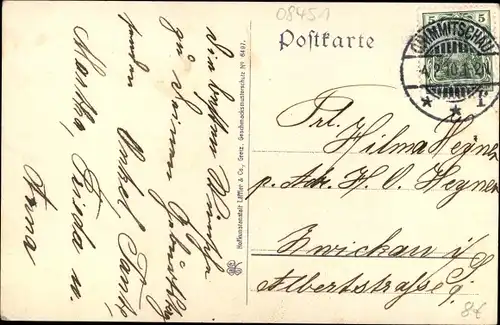 08451
Postkarte
CRIMMITSCHAU
5 5
Die besten Wünsche
zu Deinem Geburtstag
senden Onkel, Tante
Martha, Frieda u.
Anna
Hofkunstanstalt Löffler & Co., Greiz. Geschmacksmusterschutz No 6497.
Frl. Hilma Wegner
p. Adr. H. O. Wegner
Zwickau i/S
Albertstraße
8€